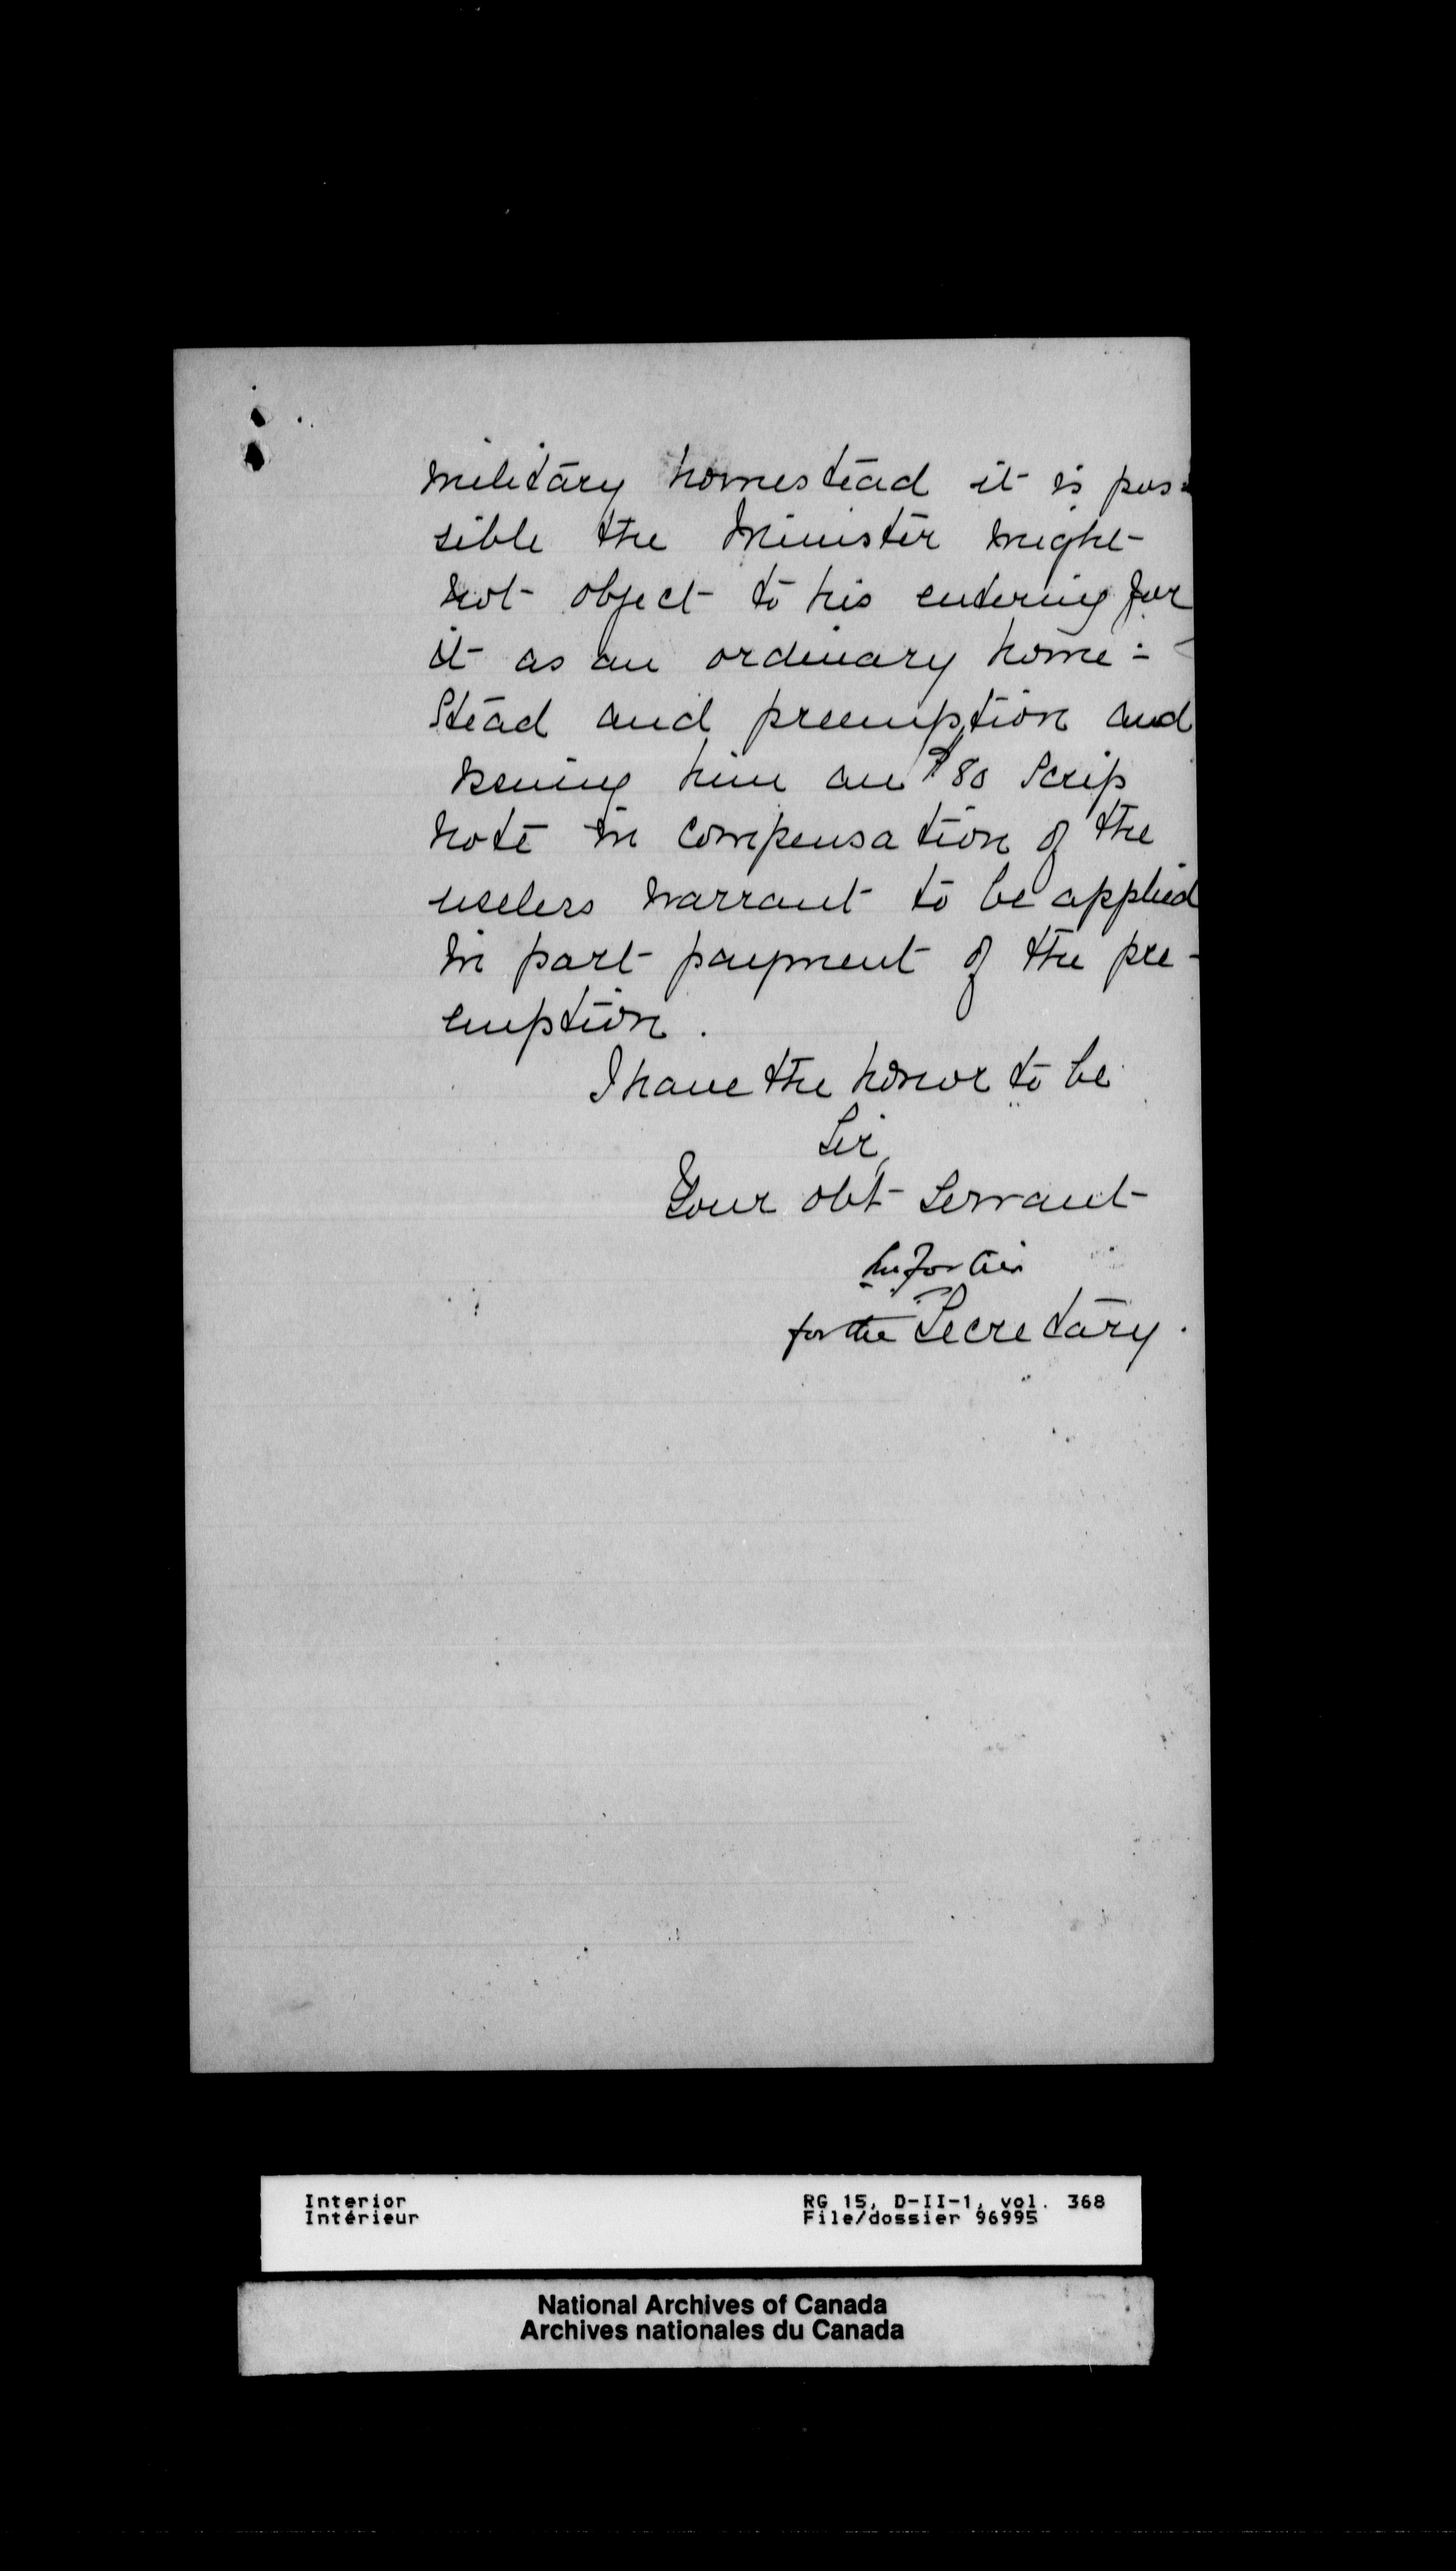 military homestead it is pos-
sible the Minister might
not object to his entering for
it as an ordinary home-
stead and preemption and
issuing him an $80 Scrip
note in compensation of the
useless warrant to be applied
in part payment of the pre-
emption.
I have the honor to be
Sir,
Your obt Servant
for the Secretary.
Interior
Intérieur
RG 15, D-II-1, vol. 368
File/dossier 96995
National Archives of Canada
Archives nationales du Canada